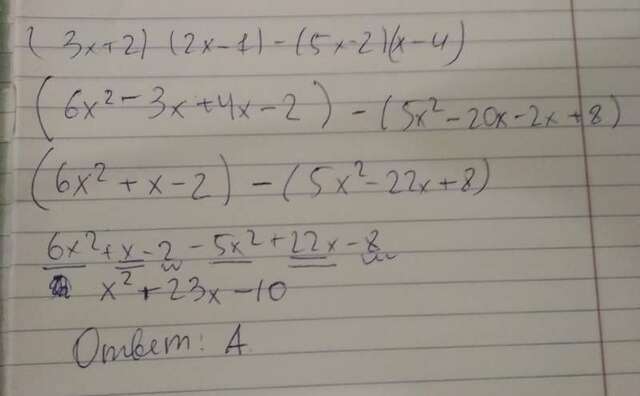 (3x+2)(2x-1)-(5x-2)(x-4)
(6x²-3x+4x-2)-(5x²-20x-2x+8)
(6x²+x-2)-(5x²-22x+8)
6x²+x-2-5x²+22x-8
x²+23x-10
Ответ: А